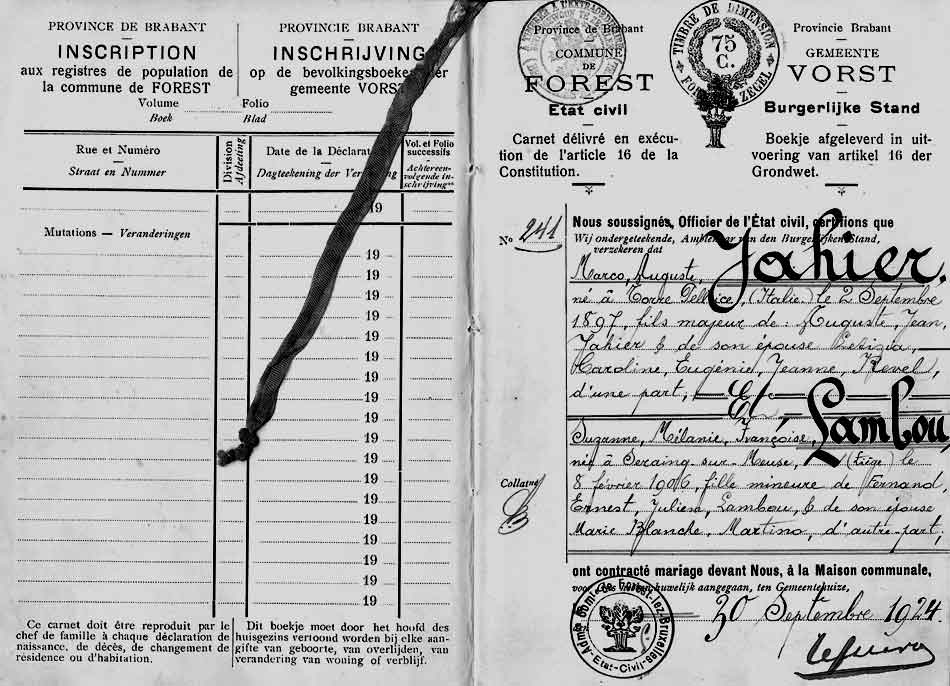 PROVINCE DE BRABANT
INSCRIPTION
aux registres de population de
la commune de FOREST
PROVINCIE BRABANT
INSCHRIJVING
op de bevolkingsboeken der
gemeente VORST
Volume Folio
Boek Blad
Rue et Numéro
Straat en Nummer
Division
Afdeeling
Date de la Déclaration
Dagteekening der Verklaring
Vol. et Folio
successifs
Achtereen-
volgende in-
schrijving
19
Mutations — Veranderingen
19
19
19
19
19
19
19
19
19
19
19
19
19
19
19
19
19
19
Ce carnet doit être reproduit par le
chef de famille à chaque déclaration de
naissance, de décès, de changement de
résidence ou d'habitation.
Dit boekje moet door het hoofd des
huisgezins vertoond worden bij elke aan-
gifte van geboorte, van overlijden, van
verandering van woning of verblijf.
Province de Brabant
COMMUNE
DE
FOREST
Etat civil
Carnet délivré en exécu-
tion de l'article 16 de la
Constitution.
TIMBRE DE DIMENSION
75
C.
ZEGEL
Provincie Brabant
GEMEENTE
VORST
Burgerlijke Stand
Boekje afgeleverd in uit-
voering van artikel 16 der
Grondwet.
No 241
Nous soussignés, Officier de l'État civil, certifions que
Wij ondergeteekende, Ambtenaar van den Burgerlijken Stand,
verzekeren dat
Jahier.
Marco, Auguste,
né à Torre Pellice, (Italie) le 2 Septembre
1897, fils majeur de: Auguste, Jean,
Jahier & de son épouse Letizia,
Caroline, Eugénie, Jeanne, Revel,
d'une part;
Et
Lambou,
Suzanne, Mélanie, Françoise,
née à Seraing-sur-Meuse, (Liège) le
8 février 1906, fille mineure de Fernand,
Ernest, Julien, Lambou, & de son épouse
Marie Blanche, Martino, d'autre part,
Collatne
ont contracté mariage devant Nous, à la Maison communale,
huwelijk aangegaan, ten Gemeentehuize,
30 Septembre 1924
Etat-Civil